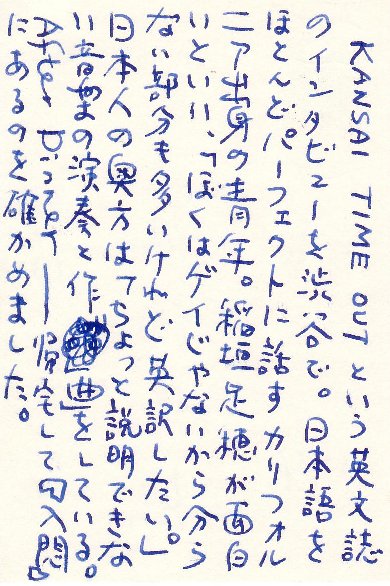 KANSAI TIME OUT という英文誌
のインタビューを渋谷で。日本語を
ほとんどパーフェクトに話すカリフォル
ニア出身の青年。稲垣足穂が面白
いといい、「ぼくはゲイじゃないから分ら
ない部分も多いけれど英訳したい。」
日本人の奥方は「ちょっと説明できな
い音楽の演奏と作曲」をしている。
帰宅して
にあるのを確かめました。